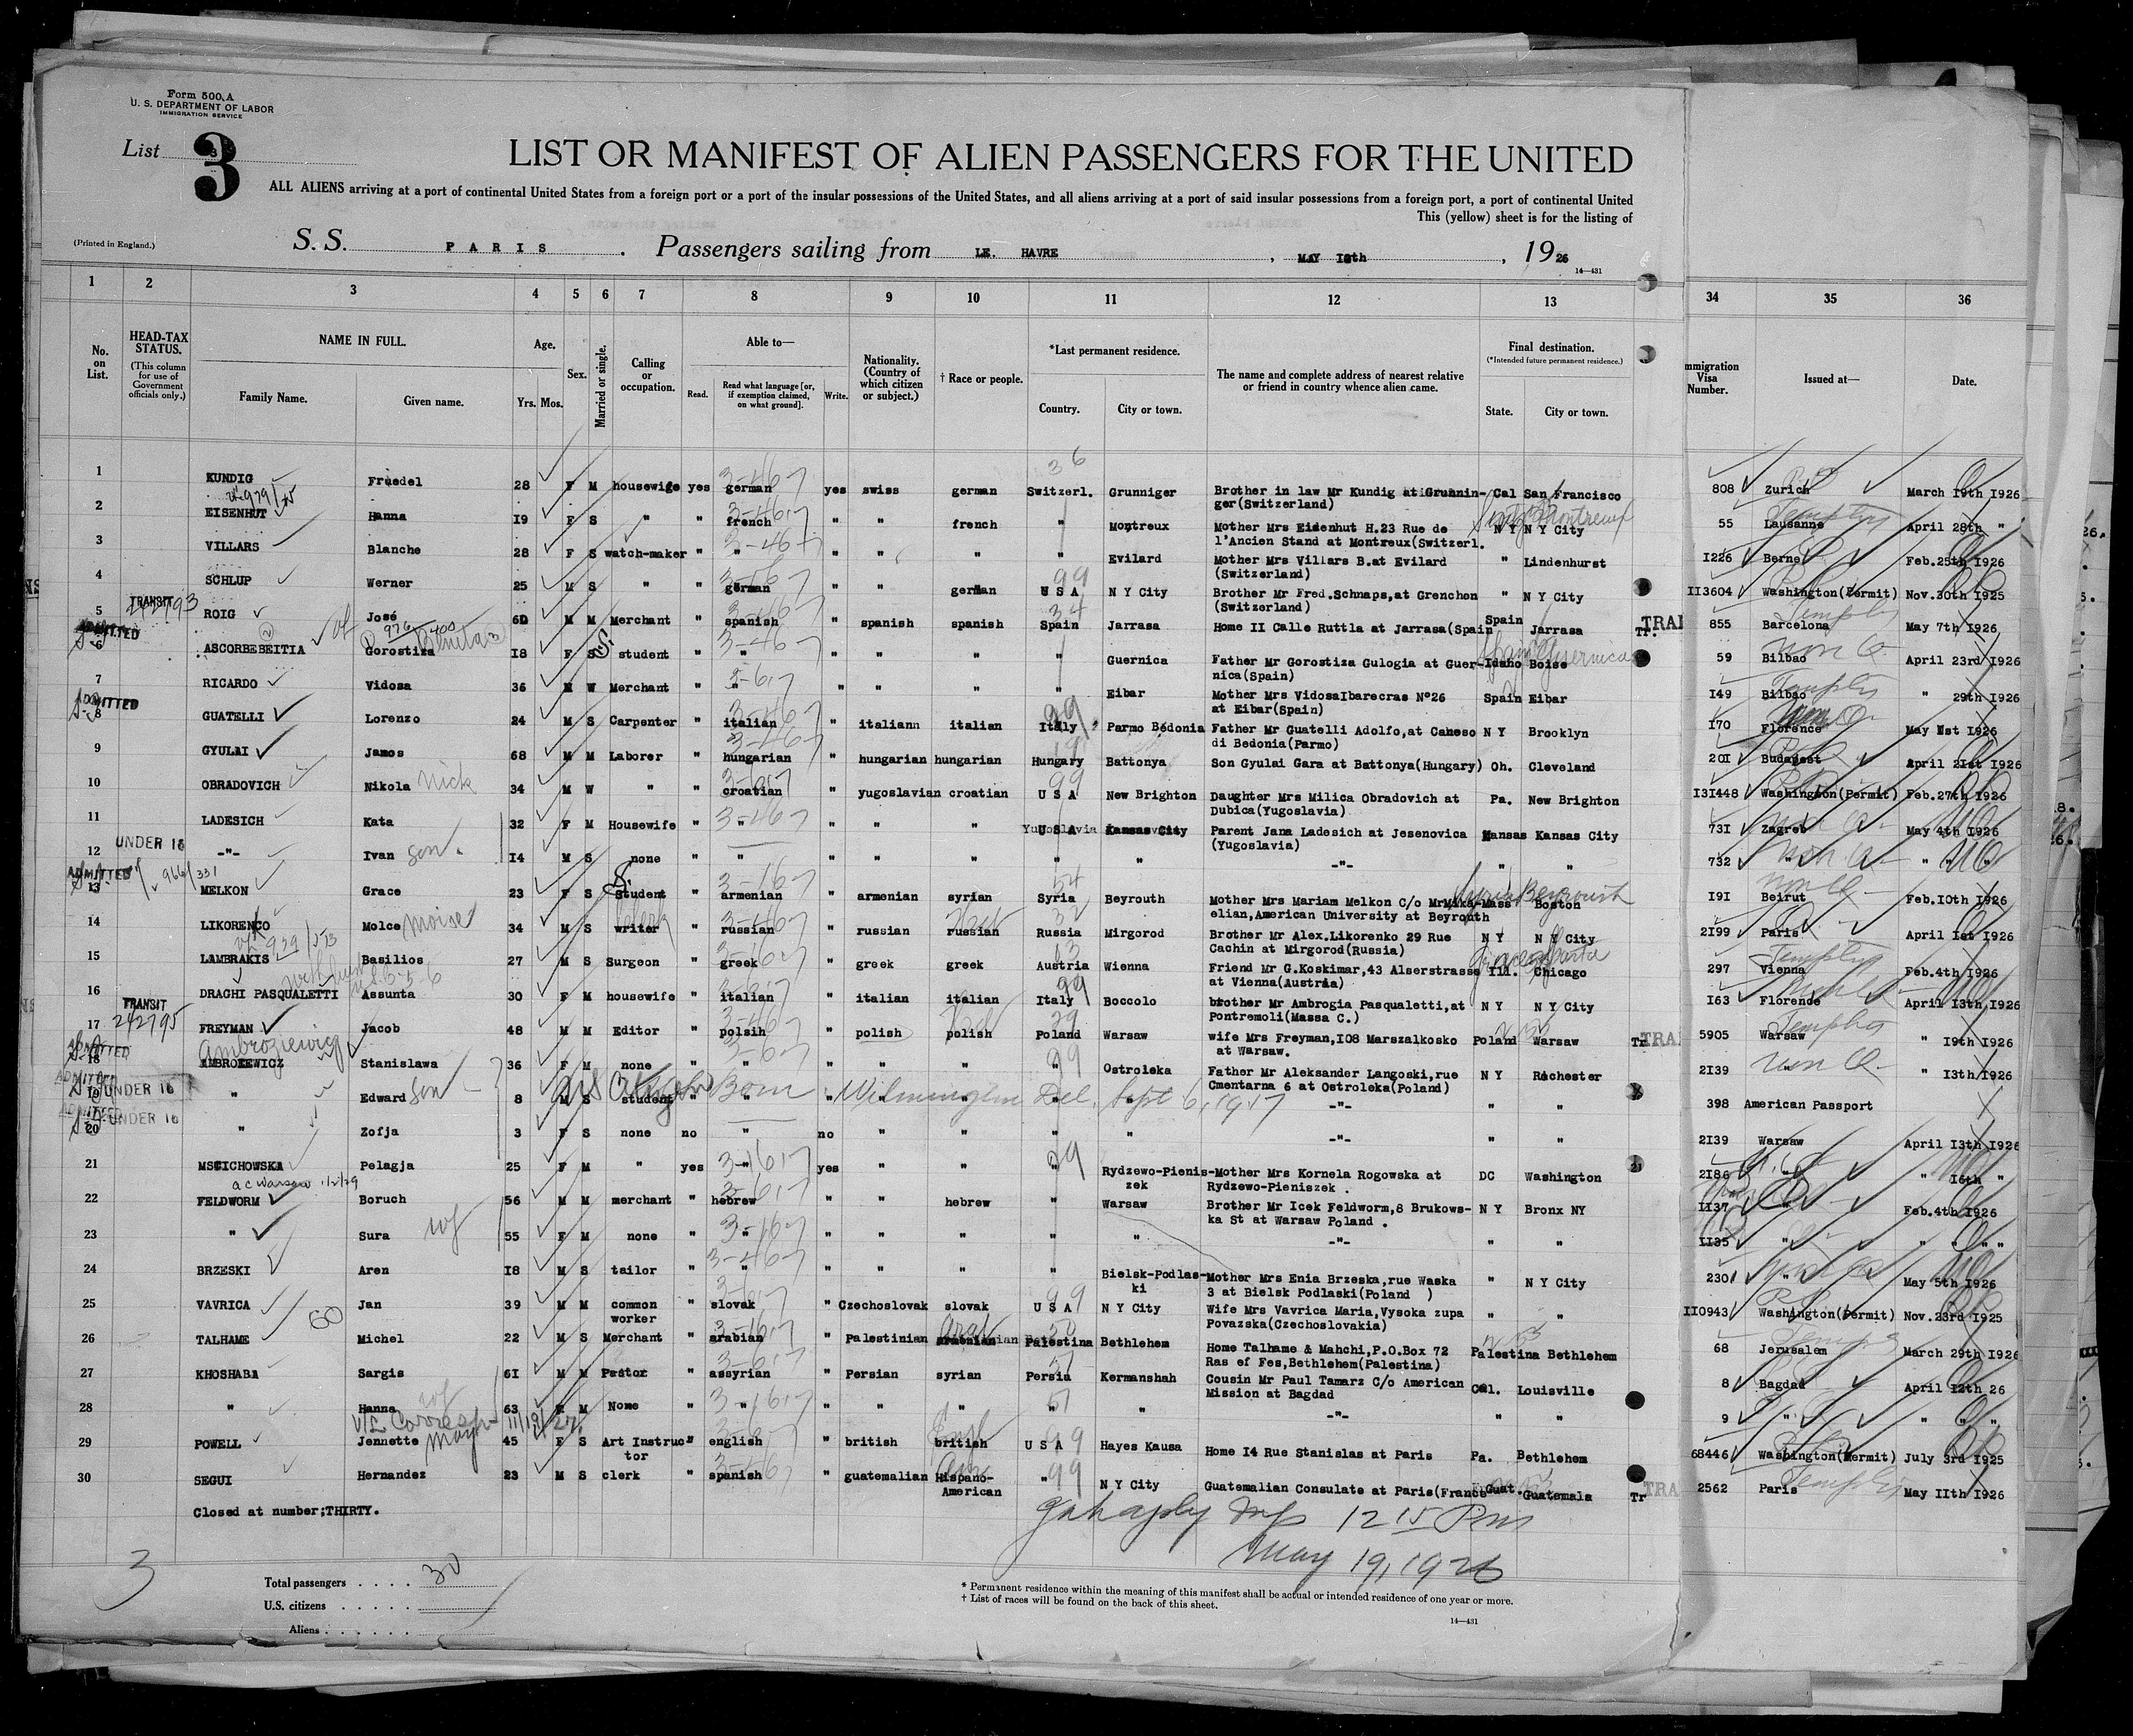 Form 500 A
U. S. DEPARTMENT OF LABOR
IMMIGRATION SERVICE
List 3
LIST OR MANIFEST OF ALIEN PASSENGERS FOR THE UNITED
ALL ALIENS arriving at a port of continental United States from a foreign port or a port of the insular possessions of the United States, and all aliens arriving at a port of said insular possessions from a foreign port, a port of continental United
This (yellow) sheet is for the listing of
(Printed in England.)
S. S. PARIS. Passengers sailing from LE. HAVRE, MAY 19 26
14—431
1 2 3 4 5 6 7 8 9 10 11 12 13 34 35 36
No. on List.
HEAD-TAX STATUS.
(This column for use of Government officials only.)
NAME IN FULL.
Family Name. Given name.
Age.
Yrs. Mos.
Sex.
Married or single.
Calling or occupation.
Able to—
Read. Read what language [or, if exemption claimed, on what ground]. Write.
Nationality. (Country of which citizen or subject.)
† Race or people.
*Last permanent residence.
Country. City or town.
The name and complete address of nearest relative or friend in country whence alien came.
Final destination.
(*Intended future permanent residence.)
State. City or town.
Immigration Visa Number.
Issued at—
Date.
1 KUNDIG Fruedel 28 F M housewife yes german yes swiss german Switzerl. Grunniger Brother in law Mr Kundig at Grunnin- Cal San Francisco 808 Zurich March I9th I926
ger(Switzerland)
2 EISENHUT Hanna I9 F S " " french " " french " Montreux Mother Mrs Eisenhut H.23 Rue de N Y N Y City 55 Lausanne April 28th "
l'Ancien Stand at Montreux(Switzerl.
3 VILLARS Blanche 28 F S watch-maker " " " " " " Evilard Mother Mrs Villars B.at Evilard " Lindenhurst I226 Berne Feb.25th I926
(Switzerland)
4 SCHLUP Werner 25 M S " " german " " german U S A N Y City Brother Mr Fred.Schnaps,at Grenchen " N Y City II3604 Washington(Permit) Nov.30th I925
(Switzerland)
TRANSIT 242793
5 ROIG José 60 M M Merchant " spanish " spanish spanish Spain Jarrasa Home II Calle Ruttla at Jarrasa(Spain Spain Jarrasa Tr. 855 Barcelona May 7th I926
ADMITTED
6 ASCORBEBEITIA Gorostiza I8 F S student " " " " " " Guernica Father Mr Gorostiza Gulogia at Guer- Idaho Boise 59 Bilbao April 23rd I926
nica(Spain)
7 RICARDO Vidosa 36 M W Merchant " " " " " " Eibar Mother Mrs VidosaIbarecras N°26 Spain Eibar I49 Bilbao " 29th I926
at Eibar(Spain)
ADMITTED
8 GUATELLI Lorenzo 24 M S Carpenter " italian " italiann italian Italy Parmo Bédonia Father Mr Guatelli Adolfo,at Caneso N Y Brooklyn I70 Florence May Ist I926
di Bedonia(Parmo)
9 GYULAI Jamos 68 M M Laborer " hungarian " hungarian hungarian Hungary Battonya Son Gyulai Gara at Battonya(Hungary) Oh. Cleveland 20I Budapest April 2Ist I926
10 OBRADOVICH Nikola Nick 34 M W " " croatian " yugoslavian croatian U S A New Brighton Daughter Mrs Milica Obradovich at Pa. New Brighton I3I448 Washington(Permit) Feb.27th I926
Dubica(Yugoslavia)
11 LADESICH Kata 32 F M Housewife " " " " " Yugoslavia Parent Jana Ladesich at Jesenovica Kansas Kansas City 73I Zagreb May 4th I926
(Yugoslavia)
UNDER 16
12 -"- Ivan son. I4 M S none " " " " " " " -"- " " 732 " " " "
ADMITTED
13 MELKON Grace 23 F S Student " armenian " armenian syrian Syria Beyrouth Mother Mrs Mariam Melkon C/o Mr Mika- Mass Boston I9I Beirut Feb.IOth I926
elian,American University at Beyrouth
14 LIKORENCO Molce Moise 34 M S writer clerk " russian " russian russian Russia Mirgorod Brother Mr Alex.Likorenko 29 Rue N Y N Y City 2I99 Paris April Ist I926
Cachin at Mirgorod(Russia)
15 LAMBRAKIS Basilios 27 M S Surgeon " greek " greek greek Austria Wienna Friend Mr G.Koskimar,43 Alserstrasse Ill. Chicago 297 Vienna Feb.4th I926
at Vienna(Austria)
16 DRAGHI PASQUALETTI Assunta 30 F M housewife " italian " italian italian Italy Boccolo brother Mr Ambrogia Pasqualetti,at N Y N Y City I63 Florence April I3th I926
Pontremoli(Massa C.)
TRANSIT 242795
17 FREYMAN Jacob 48 M M Editor " polsih " polish polish Poland Warsaw wife Mrs Freyman,IO8 Marszalkosko Poland Warsaw Tr 5905 Warsaw " I9th I926
at Warsaw.
Ambroziewicz
ADMITTED
18 AMBROZEWICZ Stanislawa 36 F M none " " " " " " Ostroleka Father Mr Aleksander Langoski,rue N Y Rochester 2I39 " " I3th I926
Cmentarna 6 at Ostroleka(Poland)
ADMITTED UNDER 16
19 " Edward son 8 M S student " " " " " " " -"- " " 398 American Passport
Born Wilmington Del. Sept 6, 1917
ADMITTED UNDER 16
20 " Zofja 3 F S none no " no " " " " -"- " " 2I39 Warsaw April I3th I926
21 MSCICHOWSKA Pelagja 25 F M " yes " yes " " " Rydzewo-Pienis- Mother Mrs Kornela Rogowska at DC Washington 2I86 " " I6th "
zek Rydzewo-Pieniszek .
22 FELDWORM Boruch 56 M M merchant " hebrew " " hebrew " Warsaw Brother Mr Icek Feldworm,8 Brukows- N Y Bronx NY II37 " Feb.4th I926
ka St at Warsaw Poland .
23 " Sura wf 55 F M none " " " " " " " -"- " " II35 " " " "
24 BRZESKI Aren I8 M S tailor " " " " " " Bielsk-Podlas- Mother Mrs Enia Brzeska,rue Waska " N Y City 230I " May 5th I926
ki 3 at Bielsk Podlaski(Poland )
25 VAVRICA Jan 39 M M common " slovak " Czechoslovak slovak U S A N Y City Wife Mrs Vavrica Maria,Vysoka zupa " " IIO943 Washington(Permit) Nov.23rd I925
worker Povazska(Czechoslovakia)
26 TALHAME Michel 22 M S Merchant " arabian " Palestinian Palestina Bethlehem Home Talhame & Mahchi,P.O.Box 72 Palestina Bethlehem 68 Jerusalem March 29th I926
Ras ef Fes,Bethlehem(Palestina)
27 KHOSHABA Sargis 6I M M Pastor " assyrian " Persian syrian Persia Kermanshah Cousin Mr Paul Tamarz C/o American Cal. Louisville 8 Bagdad April I2th 26
Mission at Bagdad
28 " Hanna wf 63 F M None " " " " " " " -"- " " 9 " " " "
29 POWELL Jennette 45 F S Art Instruc " english " british british U S A Hayes Kausa Home I4 Rue Stanislas at Paris Pa. Bethlehem 68446 Washington(Permit) July 3rd I925
tor
30 SEGUI Hernandez 23 M S clerk " spanish " guatemalian Hispano- " N Y City Guatemalian Consulate at Paris(France Guat. Guatemala Tr 2562 Paris May IIth I926
American
Closed at number;THIRTY.
12 15 Pm
May 19, 1926
3
Total passengers . . . . 30
U.S. citizens . . . . .
Aliens . . . . . .
* Permanent residence within the meaning of this manifest shall be actual or intended residence of one year or more.
† List of races will be found on the back of this sheet.
14—431